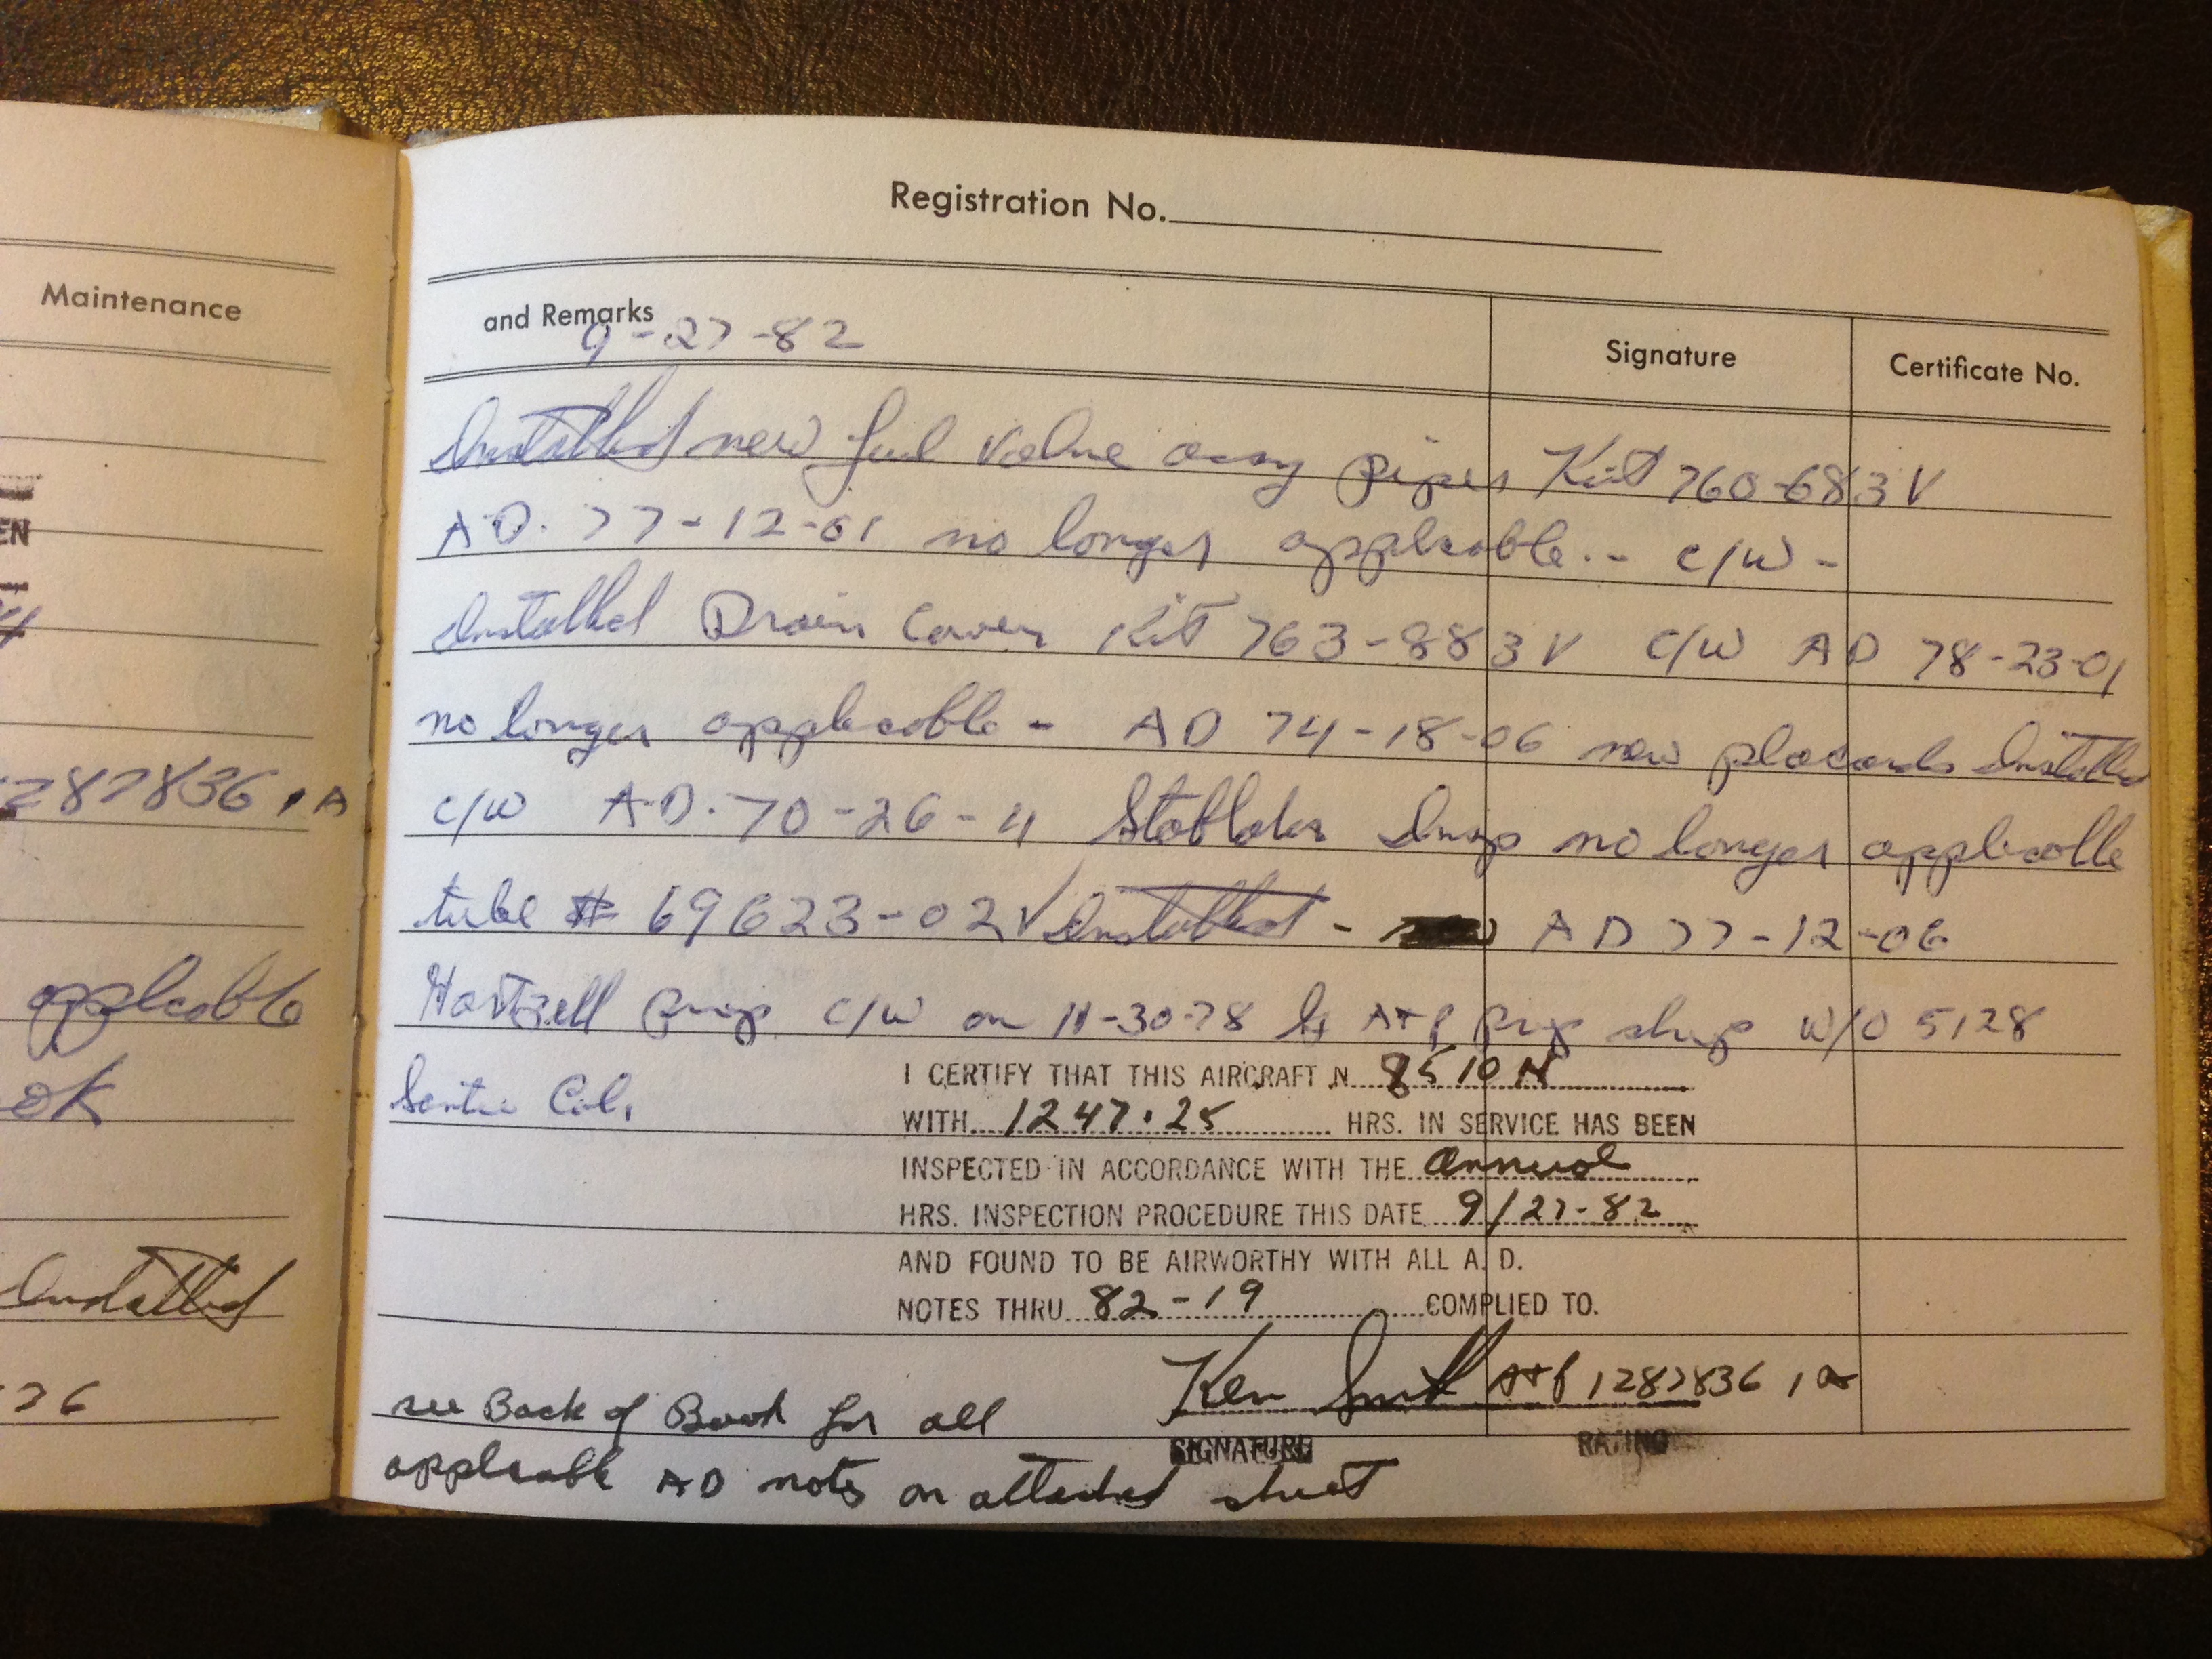 Maintenance
EN
287836 IA
applicable
ok
Installed
26
Registration No.
and Remarks
Signature
Certificate No.
9-27-82
Installed new fuel valve assy Piper Kit 760-683V
A.D. 77-12-01 no longer applicable.- C/W -
Installed Drain Cover Kit 763-883V C/W AD 78-23-01
no longer applicable - AD 74-18-06 new placards Installed
C/W A.D. 70-26-4 Stablator Insp no longer applicable
tube # 69623-02V Installed - AD 77-12-06
Hartzell prop C/W on 11-30-78 by A+P prop shop W/O 5128
Cal.
I CERTIFY THAT THIS AIRCRAFT N 8510N
WITH 1247.25 HRS. IN SERVICE HAS BEEN
INSPECTED IN ACCORDANCE WITH THE Annual
HRS. INSPECTION PROCEDURE THIS DATE 9/27-82
AND FOUND TO BE AIRWORTHY WITH ALL A. D.
NOTES THRU 82-19 COMPLIED TO.
Ken Smith A+P 1287836 IA
SIGNATURE RATING
see Back of Book for all
applicable AD notes on attached sheet